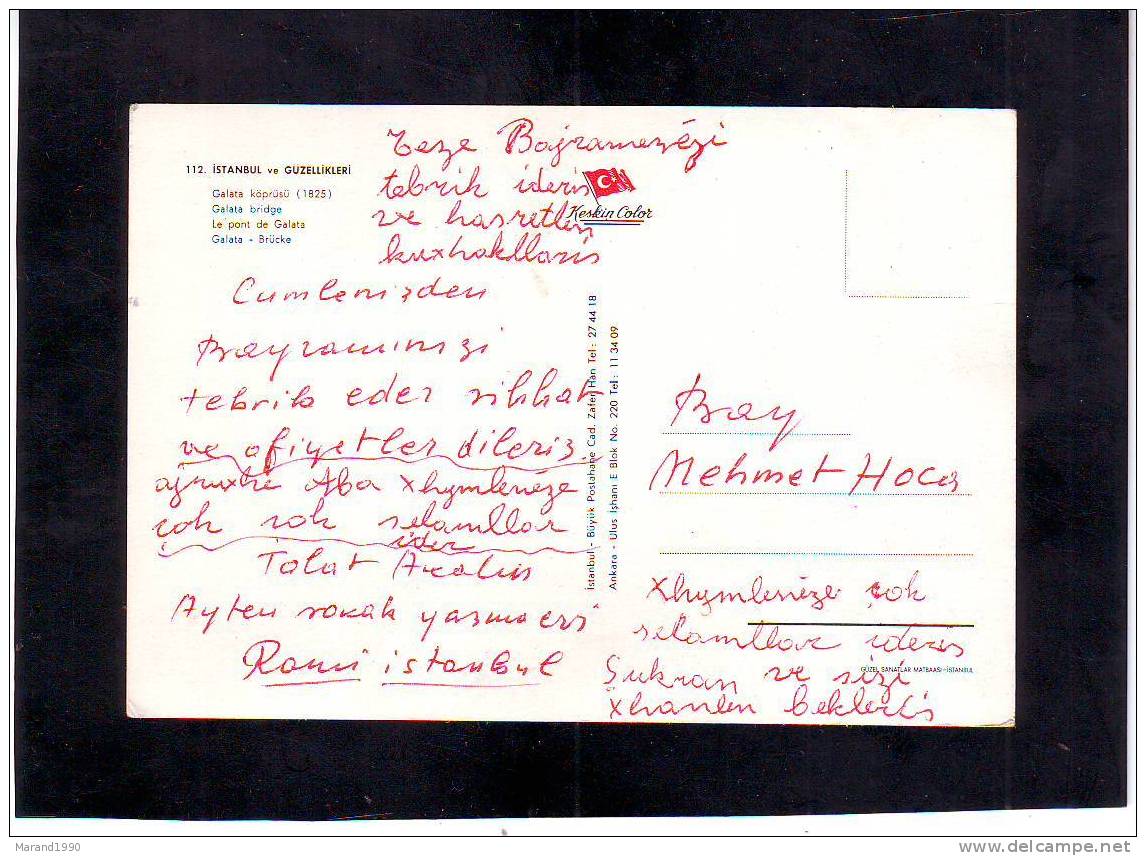 112. İSTANBUL ve GÜZELLİKLERİ
Galata köprüsü (1825)
Galata bridge
Le pont de Galata
Galata - Brücke
teze Bajramezëzi
tebrik ideris
ve hasretlen
kuxhakllaris
Keskin Color
Cumlenizden
Bayramınızi
tebrik eder sihhat
ve afiyetler dileriz.
Aba xhymlenëze
çok çok selamllar
ider
Talat Akalın
Ayten sokak yazma evi
Rami istanbul
İstanbul - Büyük Postahane Cad. Zafer Han Tel: 27 44 18
Ankara - Ulus İşhanı E Blok No. 220 Tel: 11 34 09
Bay
Mehmet Hoca
xhymlenëze çok
selamllar ideris
GÜZEL SANATLAR MATBAASI-İSTANBUL
Şukran ve sizi
xhanlen bekleris
Marand1990
delcampe.net